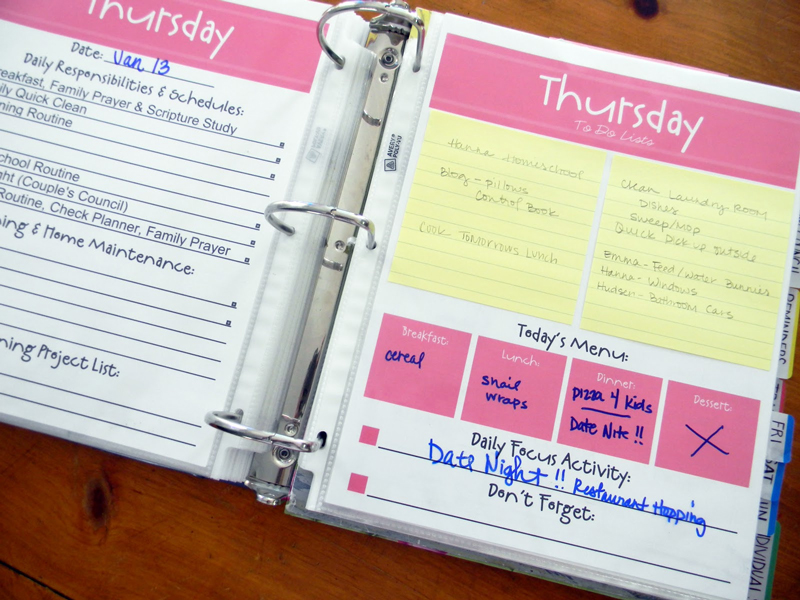 Thursday
Date: Jan 13
Daily Responsibilities & Schedules:
Breakfast, Family Prayer & Scripture Study
Quick Clean
Routine
School Routine
(Couple's Council)
Routine, Check Planner, Family Prayer
& Home Maintenance:
Project List:
AVERY
Thursday
To Do Lists
Hanna Homeschool
Blog - pillows
Control Book
Cook Tomorrows Lunch
Clean Laundry Room
Dishes
Sweep/Mop
Quick Pick up outside
Emma - Feed/Water Bunnies
Hanna - Windows
Hudson - Bathroom Cars
Today's Menu:
Breakfast:
cereal
Lunch:
snail
wraps
Dinner:
pizza 4 kids
Date Nite !!
Dessert:
X
Daily Focus Activity:
Date Night !! Restaurant Hopping
Don't Forget:
REMINDERS
FRI
SAT